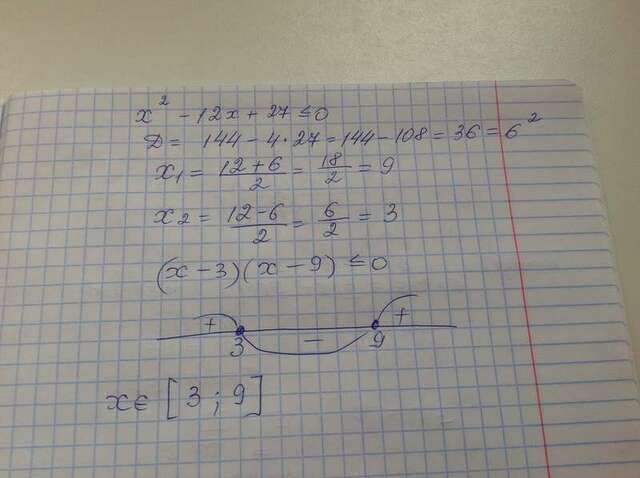 x² - 12x + 27 ≤ 0
D = 144 - 4·27 = 144 - 108 = 36 = 6²
x₁ = (12+6)/2 = 18/2 = 9
x₂ = (12-6)/2 = 6/2 = 3
(x - 3)(x - 9) ≤ 0
+ 3 − 9 +
x∈ [3 ; 9]